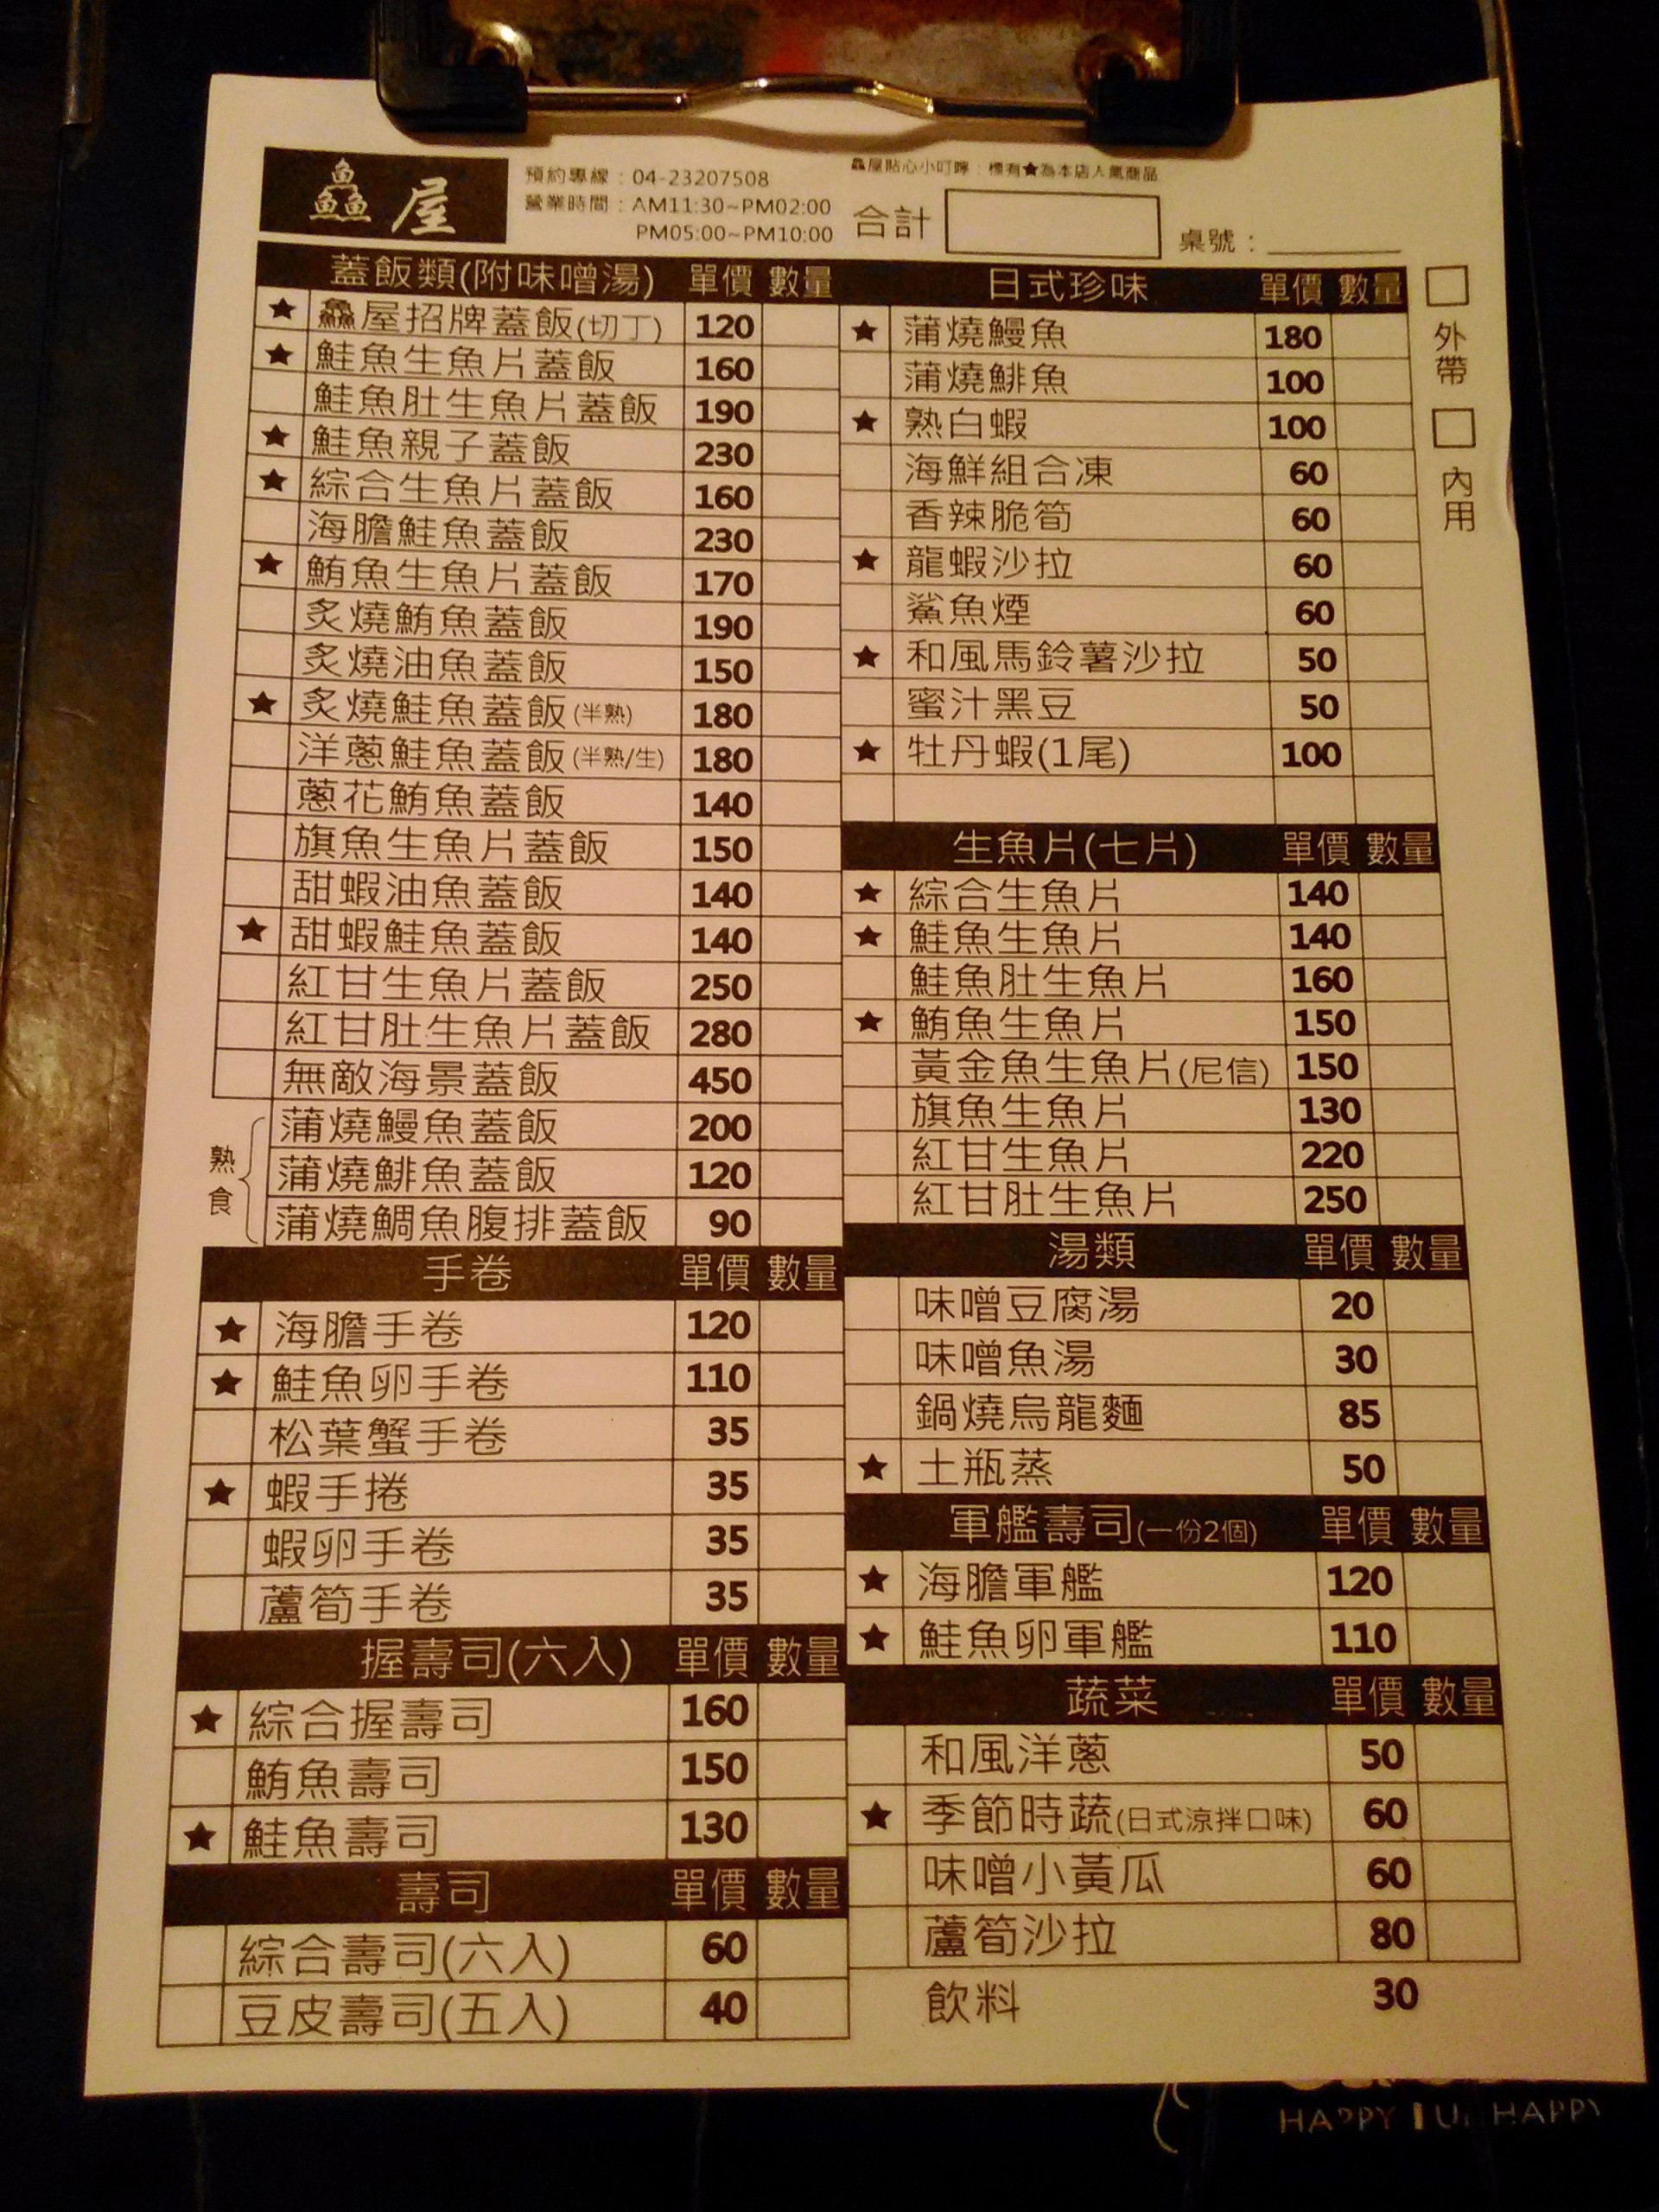 鱻屋
預約專線：04-23207508
營業時間：AM11:30~PM02:00
PM05:00~PM10:00
鱻屋貼心小叮嚀：標有★為本店人氣商品
合計
桌號：
外帶
內用
蓋飯類(附味噌湯) 單價 數量
★ 鱻屋招牌蓋飯(切丁) 120
★ 鮭魚生魚片蓋飯 160
鮭魚肚生魚片蓋飯 190
★ 鮭魚親子蓋飯 230
★ 綜合生魚片蓋飯 160
海膽鮭魚蓋飯 230
★ 鮪魚生魚片蓋飯 170
炙燒鮪魚蓋飯 190
炙燒油魚蓋飯 150
★ 炙燒鮭魚蓋飯(半熟) 180
洋蔥鮭魚蓋飯(半熟/生) 180
蔥花鮪魚蓋飯 140
旗魚生魚片蓋飯 150
甜蝦油魚蓋飯 140
★ 甜蝦鮭魚蓋飯 140
紅甘生魚片蓋飯 250
紅甘肚生魚片蓋飯 280
無敵海景蓋飯 450
熟食
蒲燒鰻魚蓋飯 200
蒲燒鯡魚蓋飯 120
蒲燒鯛魚腹排蓋飯 90
手卷 單價 數量
★ 海膽手卷 120
★ 鮭魚卵手卷 110
松葉蟹手卷 35
★ 蝦手捲 35
蝦卵手卷 35
蘆筍手卷 35
握壽司(六入) 單價 數量
★ 綜合握壽司 160
鮪魚壽司 150
★ 鮭魚壽司 130
壽司 單價 數量
綜合壽司(六入) 60
豆皮壽司(五入) 40
日式珍味 單價 數量
★ 蒲燒鰻魚 180
蒲燒鯡魚 100
★ 熟白蝦 100
海鮮組合凍 60
香辣脆筍 60
★ 龍蝦沙拉 60
鯊魚煙 60
★ 和風馬鈴薯沙拉 50
蜜汁黑豆 50
★ 牡丹蝦(1尾) 100
生魚片(七片) 單價 數量
★ 綜合生魚片 140
★ 鮭魚生魚片 140
鮭魚肚生魚片 160
★ 鮪魚生魚片 150
黃金魚生魚片(尼信) 150
旗魚生魚片 130
紅甘生魚片 220
紅甘肚生魚片 250
湯類 單價 數量
味噌豆腐湯 20
味噌魚湯 30
鍋燒烏龍麵 85
★ 土瓶蒸 50
軍艦壽司(一份2個) 單價 數量
★ 海膽軍艦 120
★ 鮭魚卵軍艦 110
蔬菜 單價 數量
和風洋蔥 50
★ 季節時蔬(日式涼拌口味) 60
味噌小黃瓜 60
蘆筍沙拉 80
飲料 30
HAPPY HAPPY